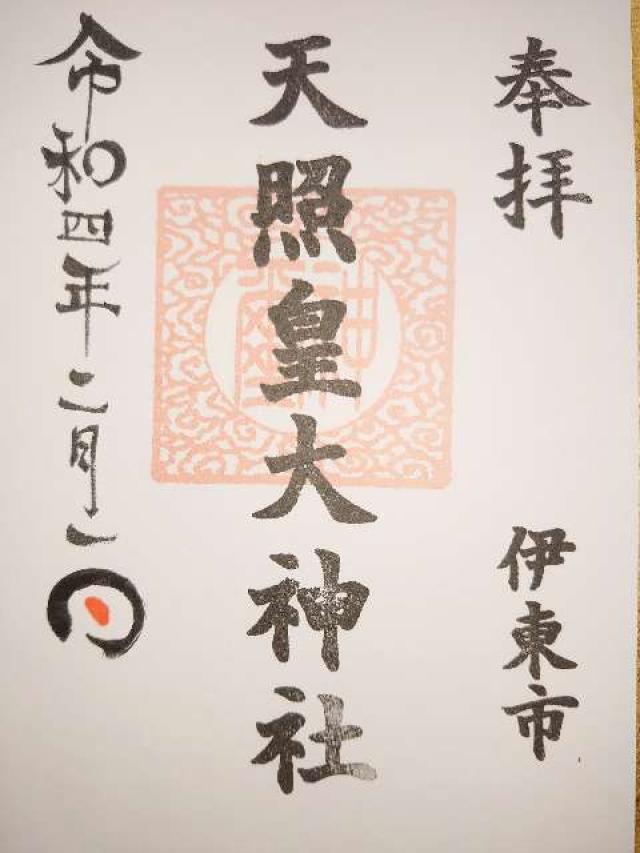 奉拝
伊東市
天照皇大神社
令和四年二月一日